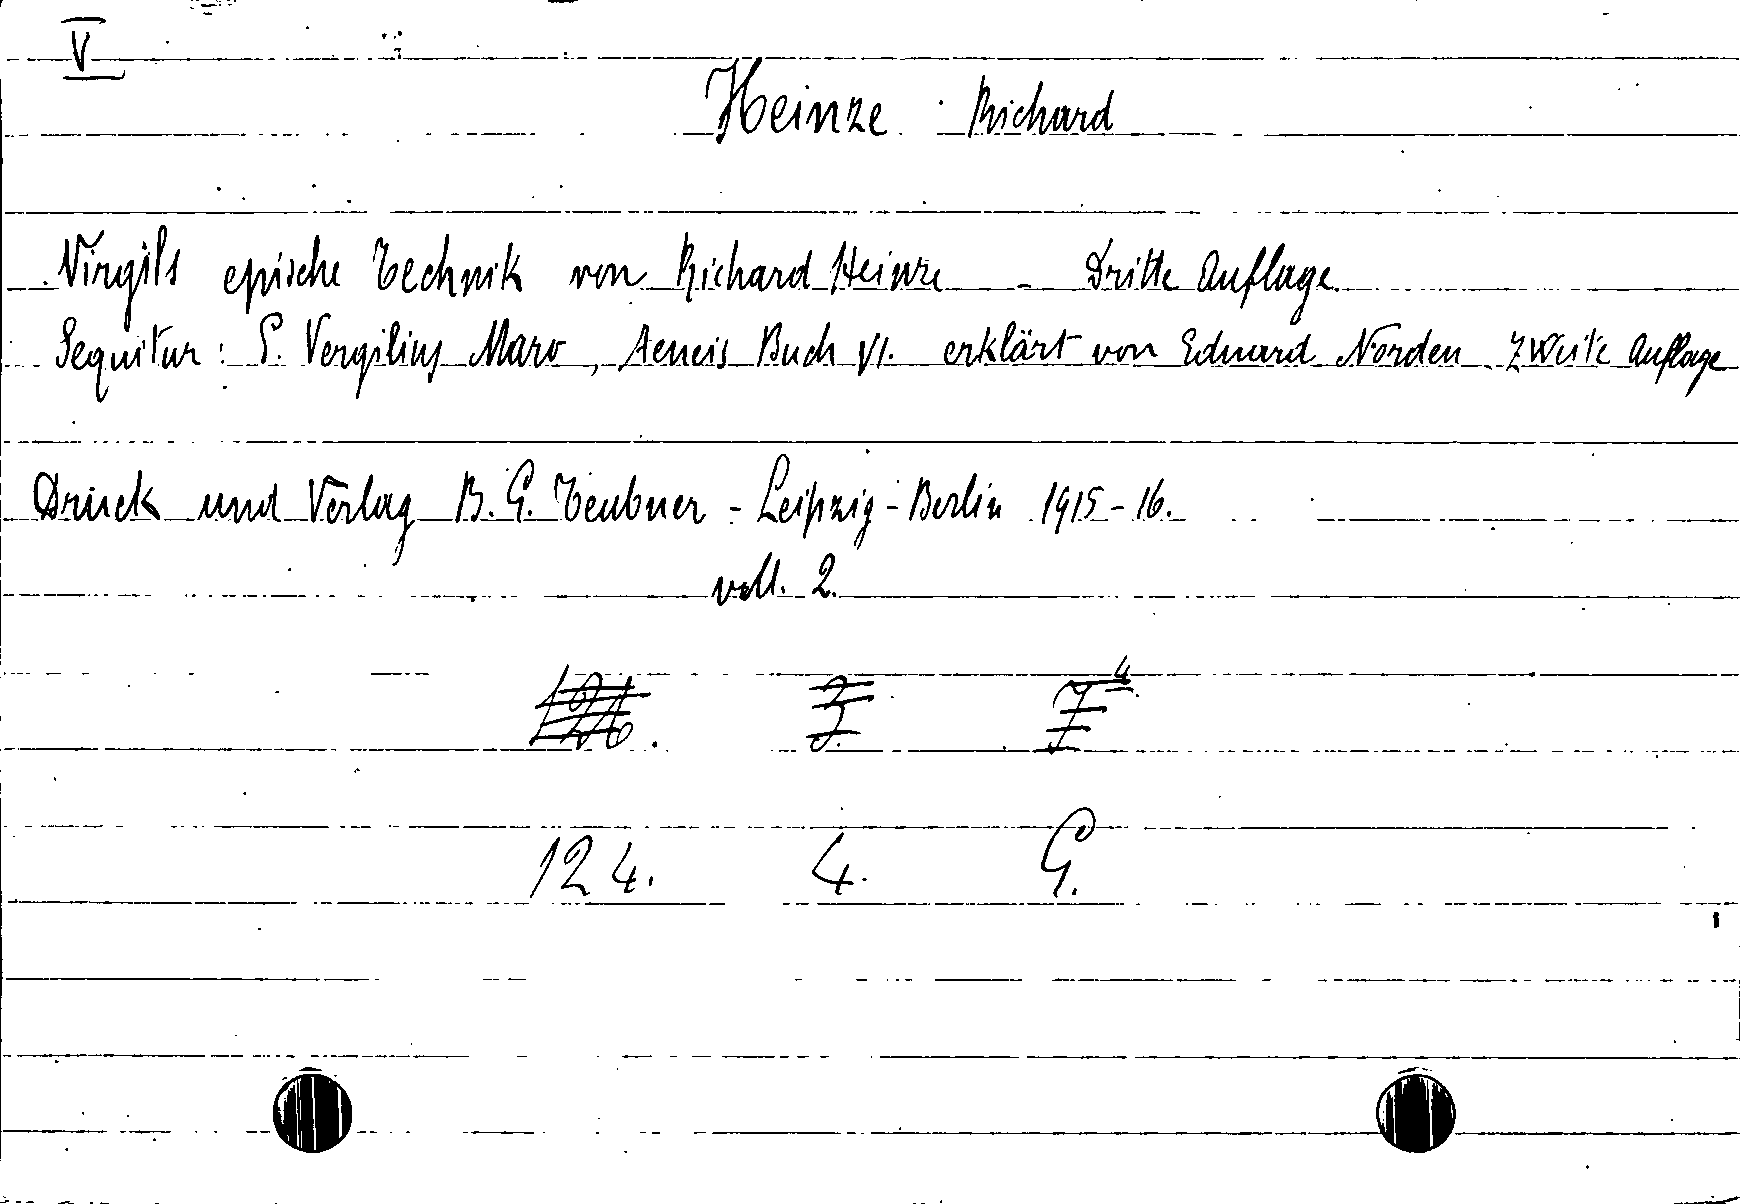 V
Heinze Richard
Virgils epische Technik von Richard Heinze - Dritte Auflage
Sequitur: P. Vergilius Maro, Aeneis Buch VI. erklärt von Eduard Norden. Zweite Auflage
Druck und Verlag B. G. Teubner - Leipzig - Berlin 1915-16.
voll. 2.
124. 4. G.